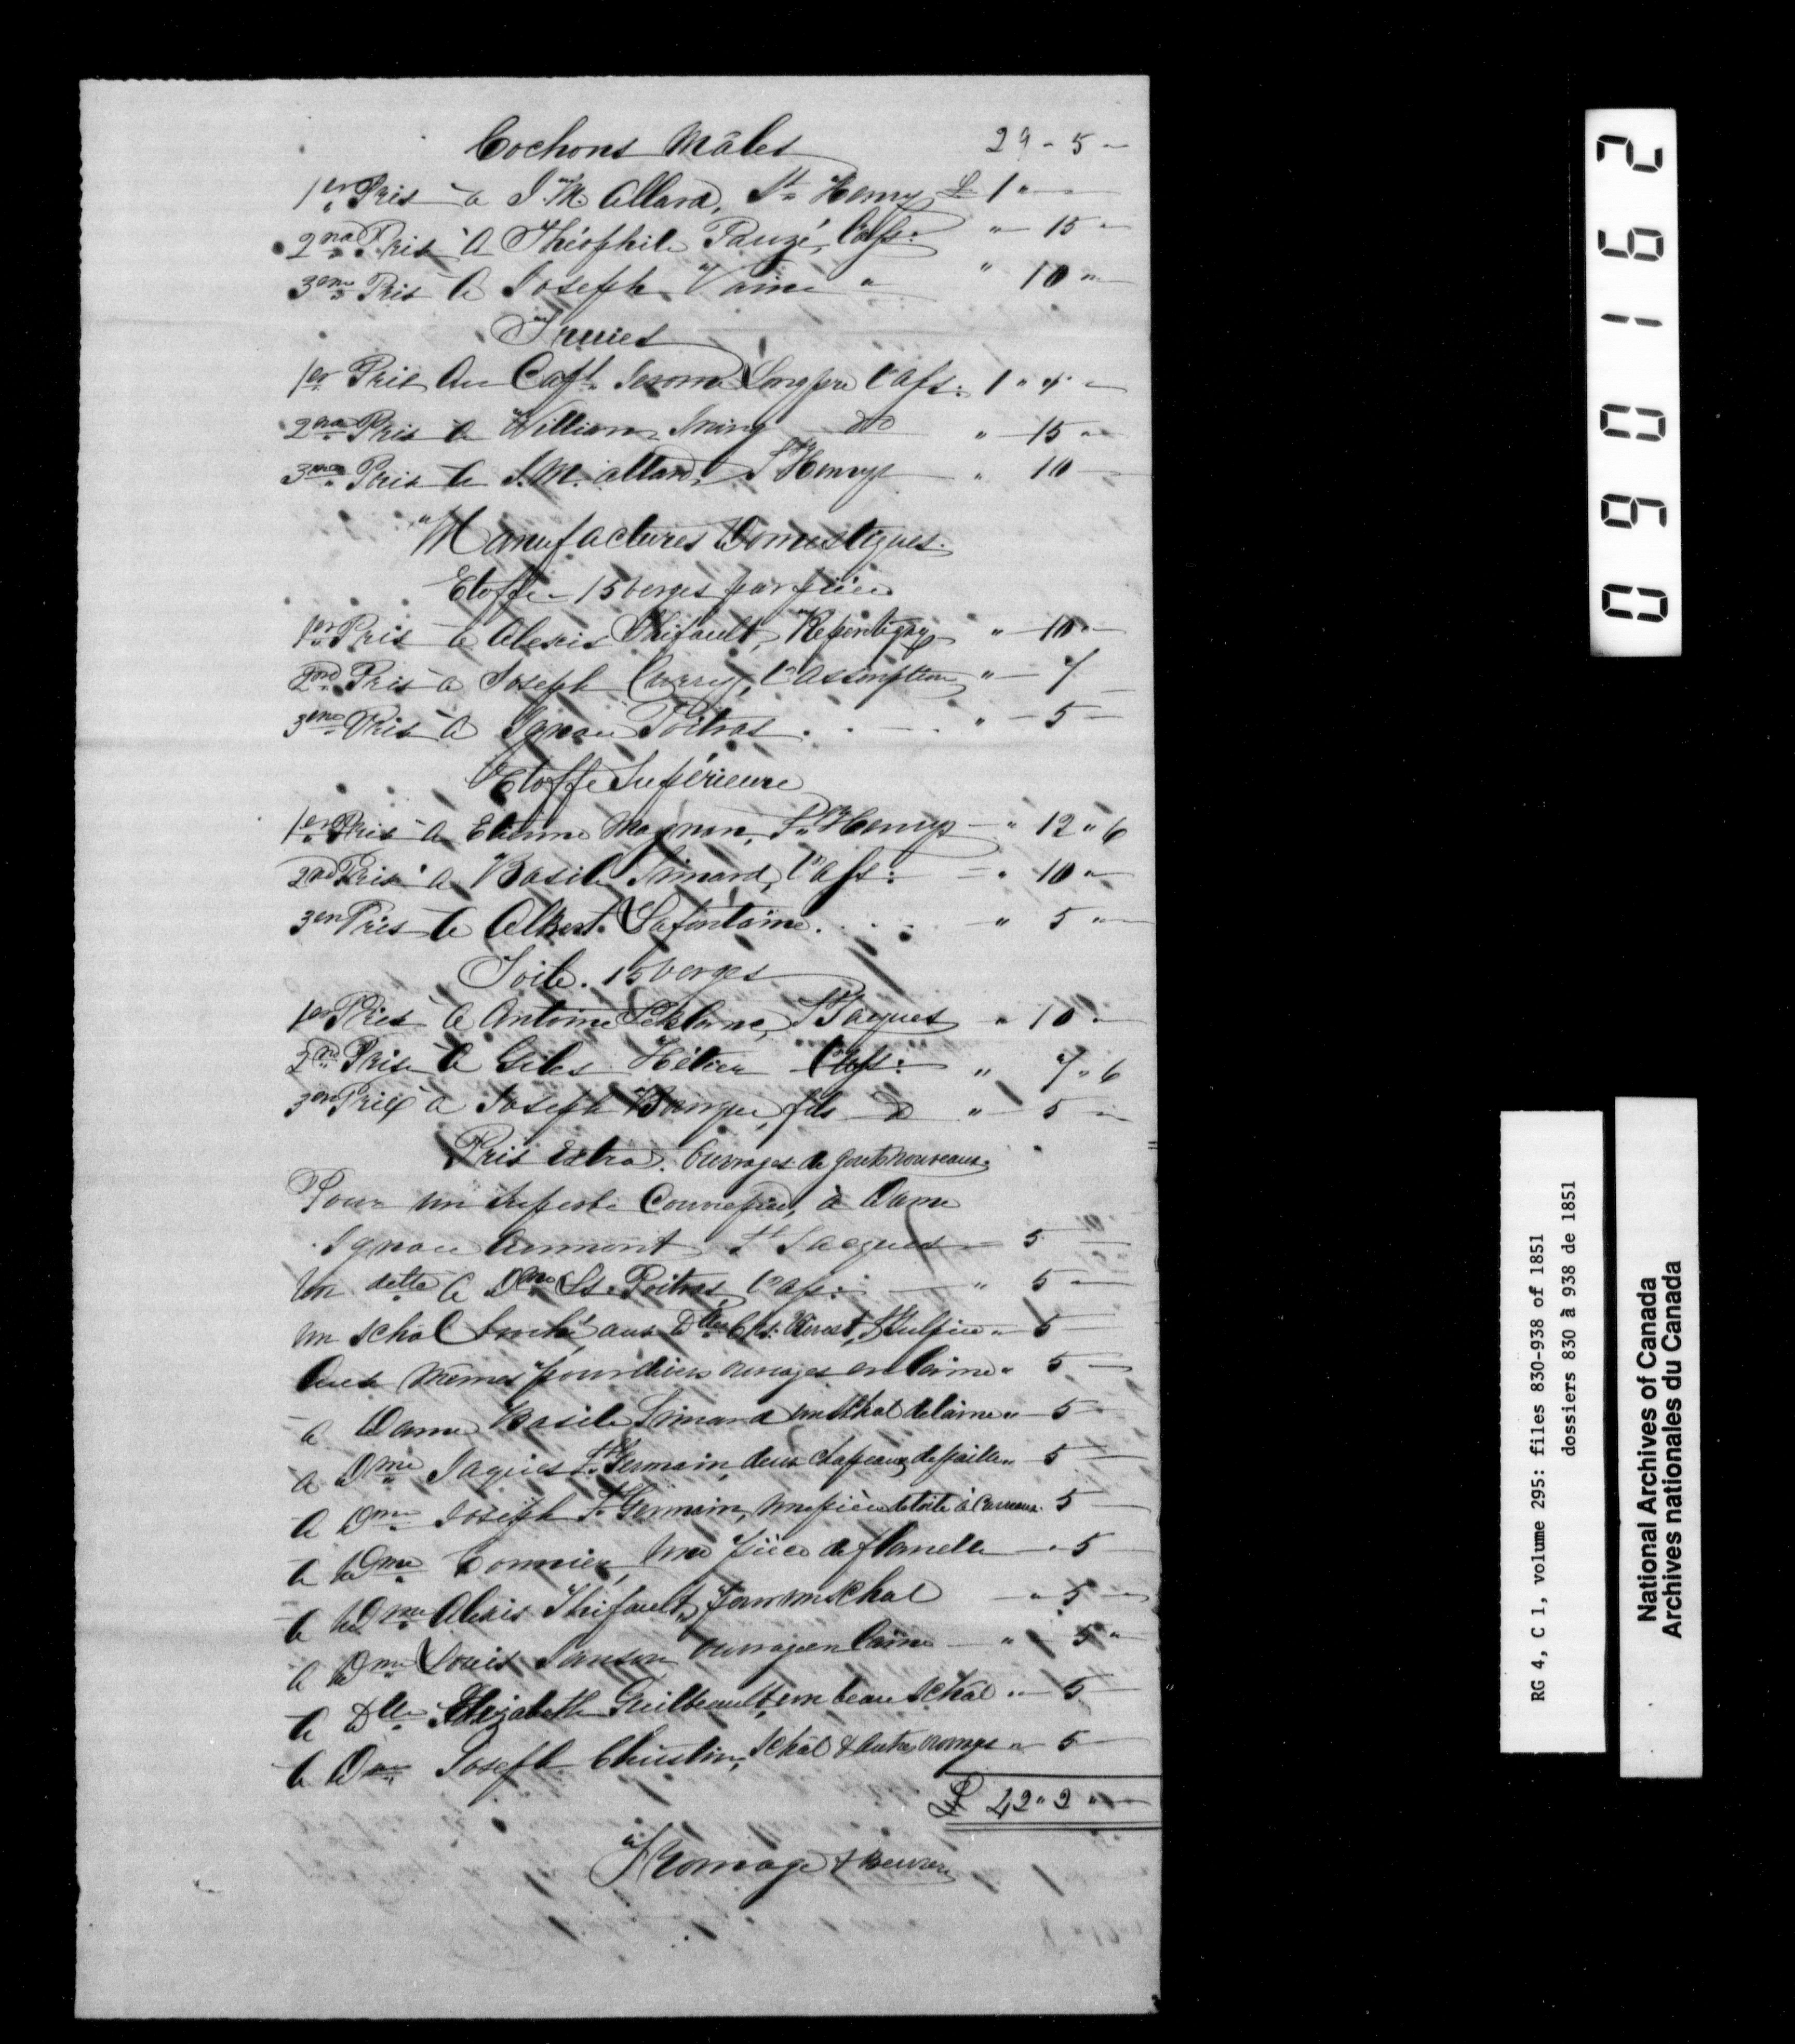 Cochons Mâles 29 - 5 -
1er Prix à J. M. Allard, St Henry £ 1 " -
2nd Prix à Théophile Pauzé, l'Ass: " - 15 -
3eme Prix à Joseph Vaine " " 10 "
Truies
1er Prix Au Capt. Jerome Longpré l'Ass: 1 " 4 " -
2nd Prix à William Ining do " - 15 -
3eme Prix à J. M. Allard, St Henry " 10 -
Manufactures Domestiques.
Etoffe - 15 verges par pièce
1er Prix à Alexis Thifault, Repentigny " - 10 " -
2nd Prix à Joseph l'Assomption " - 7
3eme Prix à Ignace Poitras . . - . " - 5 -
Etoffe Supérieure
1er Prix à Etienne Magnan, St Henry - " 12 " 6
2nd Prix à Basile Simard, l'Ass: - " 10 " -
3em Prix à Albert Lafontaine . . . . - " 5 " -
Toile. 15 verges
1er Prix à Antoine Leblanc, St Jaques " 10 " -
2nd Prix à Giles Hétier l'Ass: " 7 " 6
3em Prix à Joseph fils D " - 5 -
Prix Extra. Ouvrages de gouts nouveaux.
Pour un superbe Couvrepied, à Dame
Ignace St Jacques - 5 -
Un detto à Dme Ls. Poitras, l'Ass: - " 5 -
Un schal aux Dlles Chs. St Sulpice " - 5 -
Aux mêmes pour divers ouvrages en laine " 5 -
à Dame Basile Simard un schal de laine " - 5 -
à Dme Jaques St Germain, deux chapeaux de paille " - 5 -
à Dme Joseph St Germain, une pièce de toile à carreaux - 5 -
à Dme une pièce de flanelle - " 5 -
à Dme Alexis Thifault, pour un schal - " 5 -
à Dme Louis ouvrage en laine - " - 5 "
à Dlle Elizabeth Guilbeault, un beau schal " - 5 -
à Dme Joseph Christin, schal & autres ouvrages " - 5 -
£ 42 " 2 " -
Fromage & Beurre
090162
RG 4, C 1, volume 295: files 830-938 of 1851
dossiers 830 à 938 de 1851
National Archives of Canada
Archives nationales du Canada